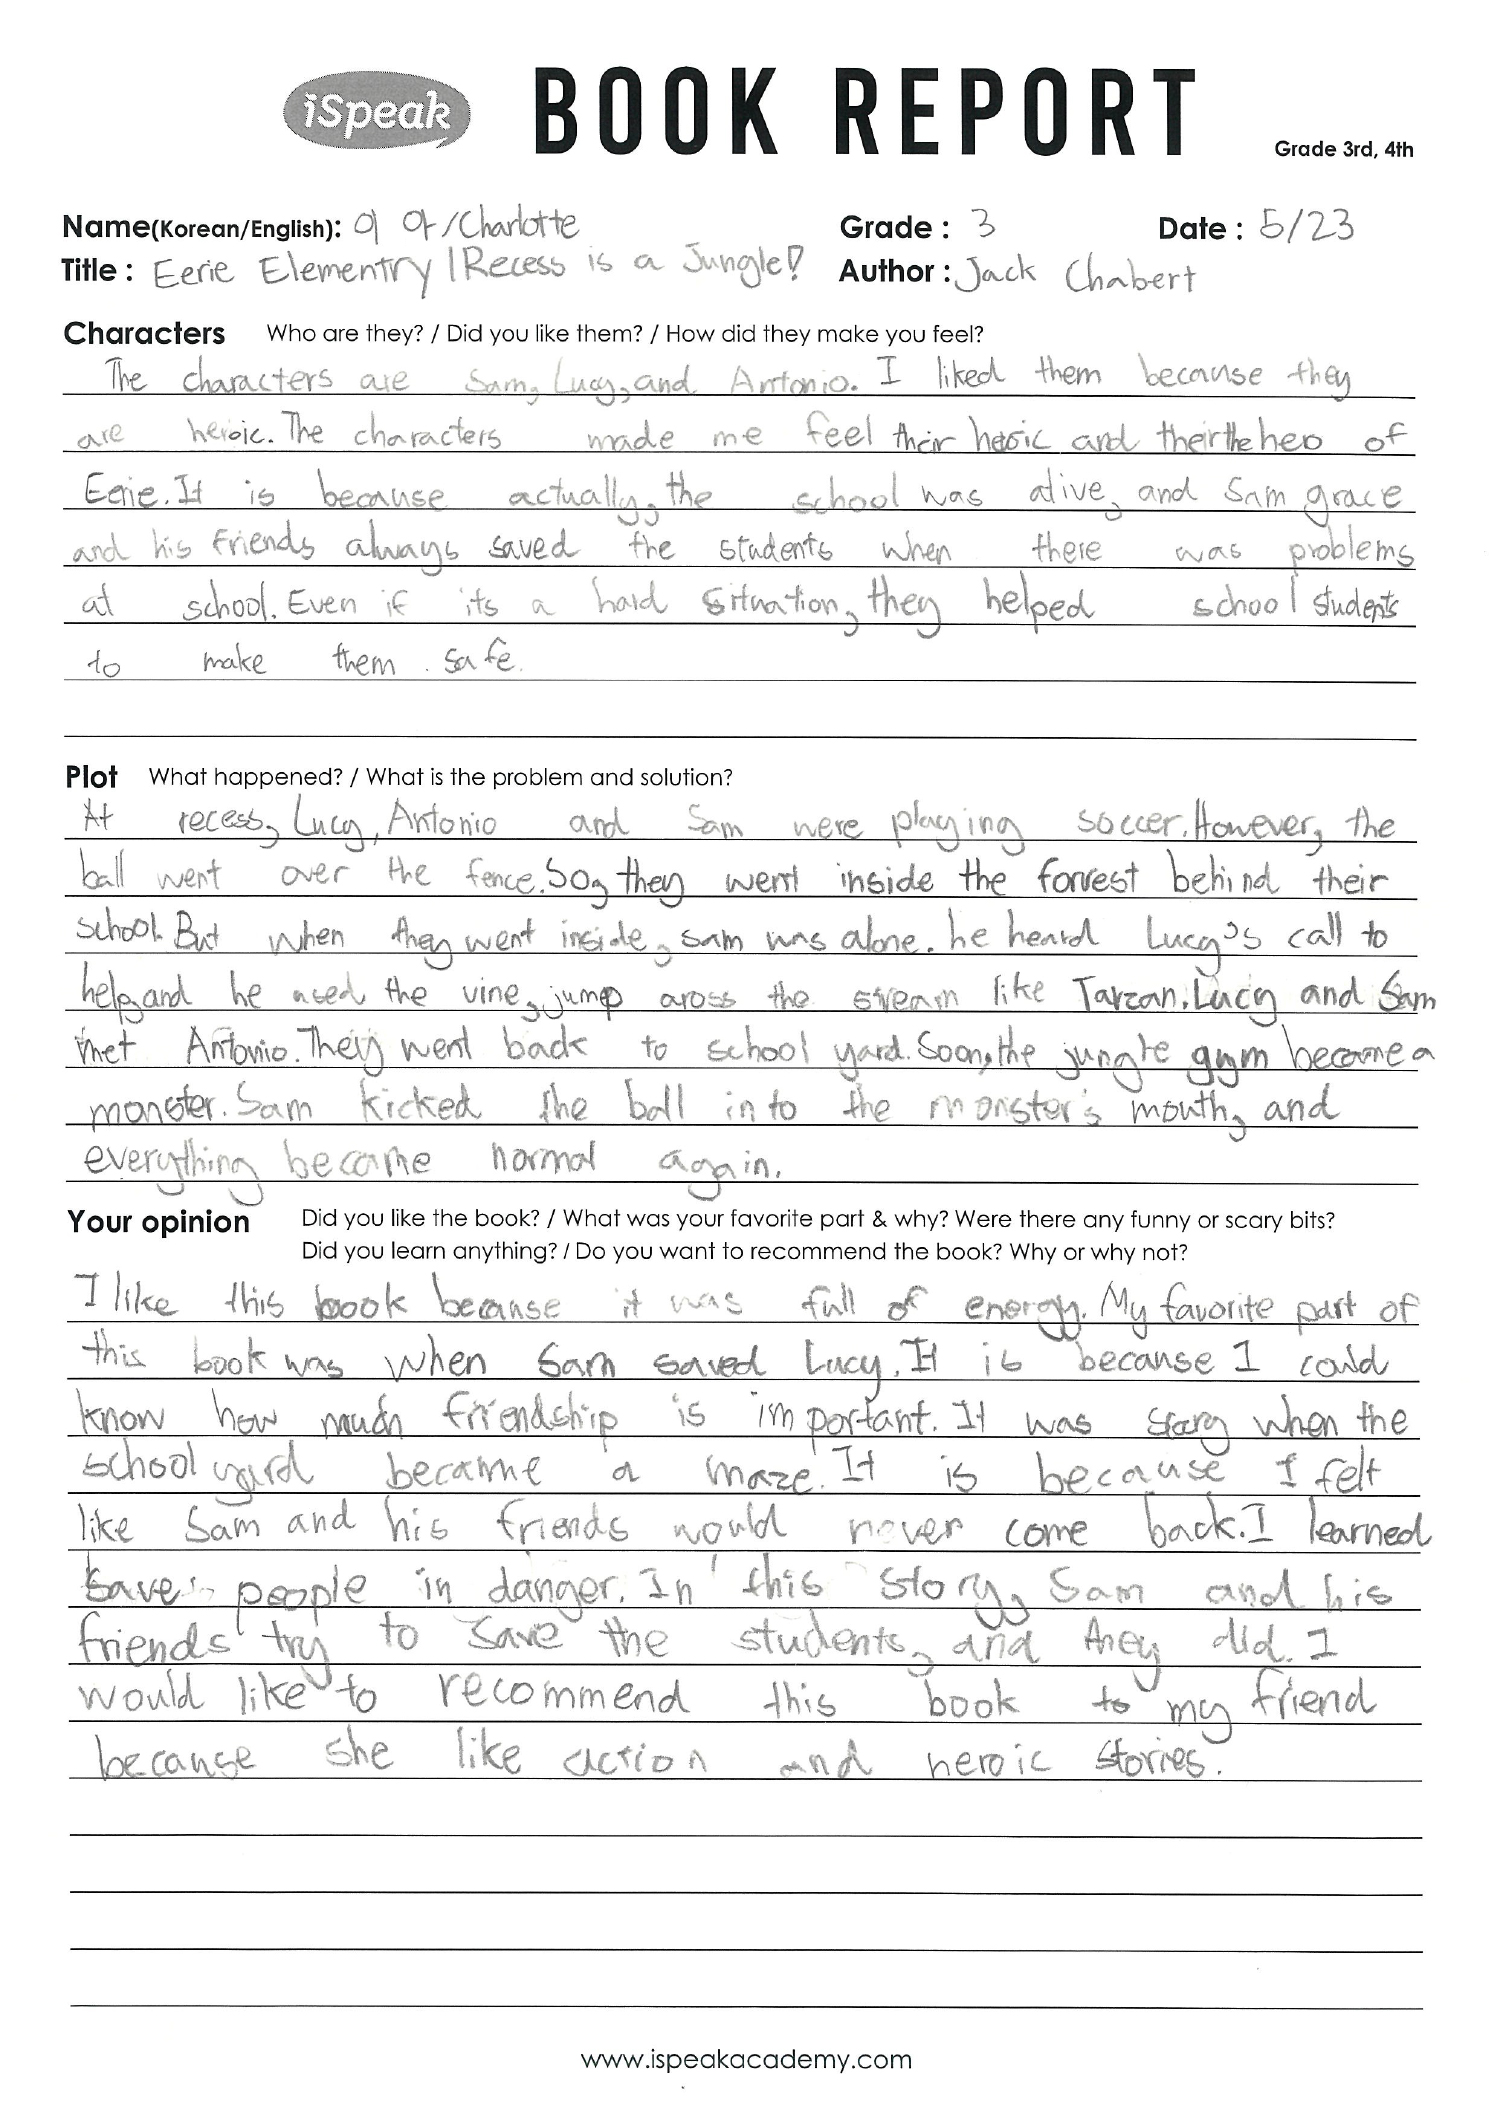 iSpeak BOOK REPORT
Grade 3rd, 4th
Name(Korean/English): 이 아/Charlotte Grade : 3 Date : 5/23
Title : Eerie Elementry | Recess is a Jungle! Author : Jack Chabert
Characters Who are they? / Did you like them? / How did they make you feel?
The characters are Sam, Lucy, and Antonio. I liked them because they
are heroic. The characters made me feel their heroic and their the hero of
Eerie. It is because actually, the school was alive, and Sam grace
and his friends always saved the students when there was problems
at school. Even if its a hard situation, they helped school students
to make them safe.
Plot What happened? / What is the problem and solution?
At recess, Lucy, Antonio and Sam were playing soccer. However, the
ball went over the fence. So, they went inside the forrest behind their
school. But when they went inside, sam was alone. he heard Lucy's call to
help, and he used the vine, jump aross the stream like Tarzan. Lucy and Sam
met Antonio. They went back to school yard. Soon, the jungle gym became a
monster. Sam kicked the ball in to the monster's mouth, and
everything became normal again.
Your opinion Did you like the book? / What was your favorite part & why? Were there any funny or scary bits?
Did you learn anything? / Do you want to recommend the book? Why or why not?
I like this book because it was full of energy. My favorite part of
this book was when Sam saved Lucy. It is because I could
know how much friendship is important. It was scary when the
school yard became a maze. It is because I felt
like Sam and his friends would never come back. I learned
save people in danger. In this story, Sam and his
friends try to save the students, and they did. I
would like to recommend this book to my friend
because she like action and heroic stories.
www.ispeakacademy.com